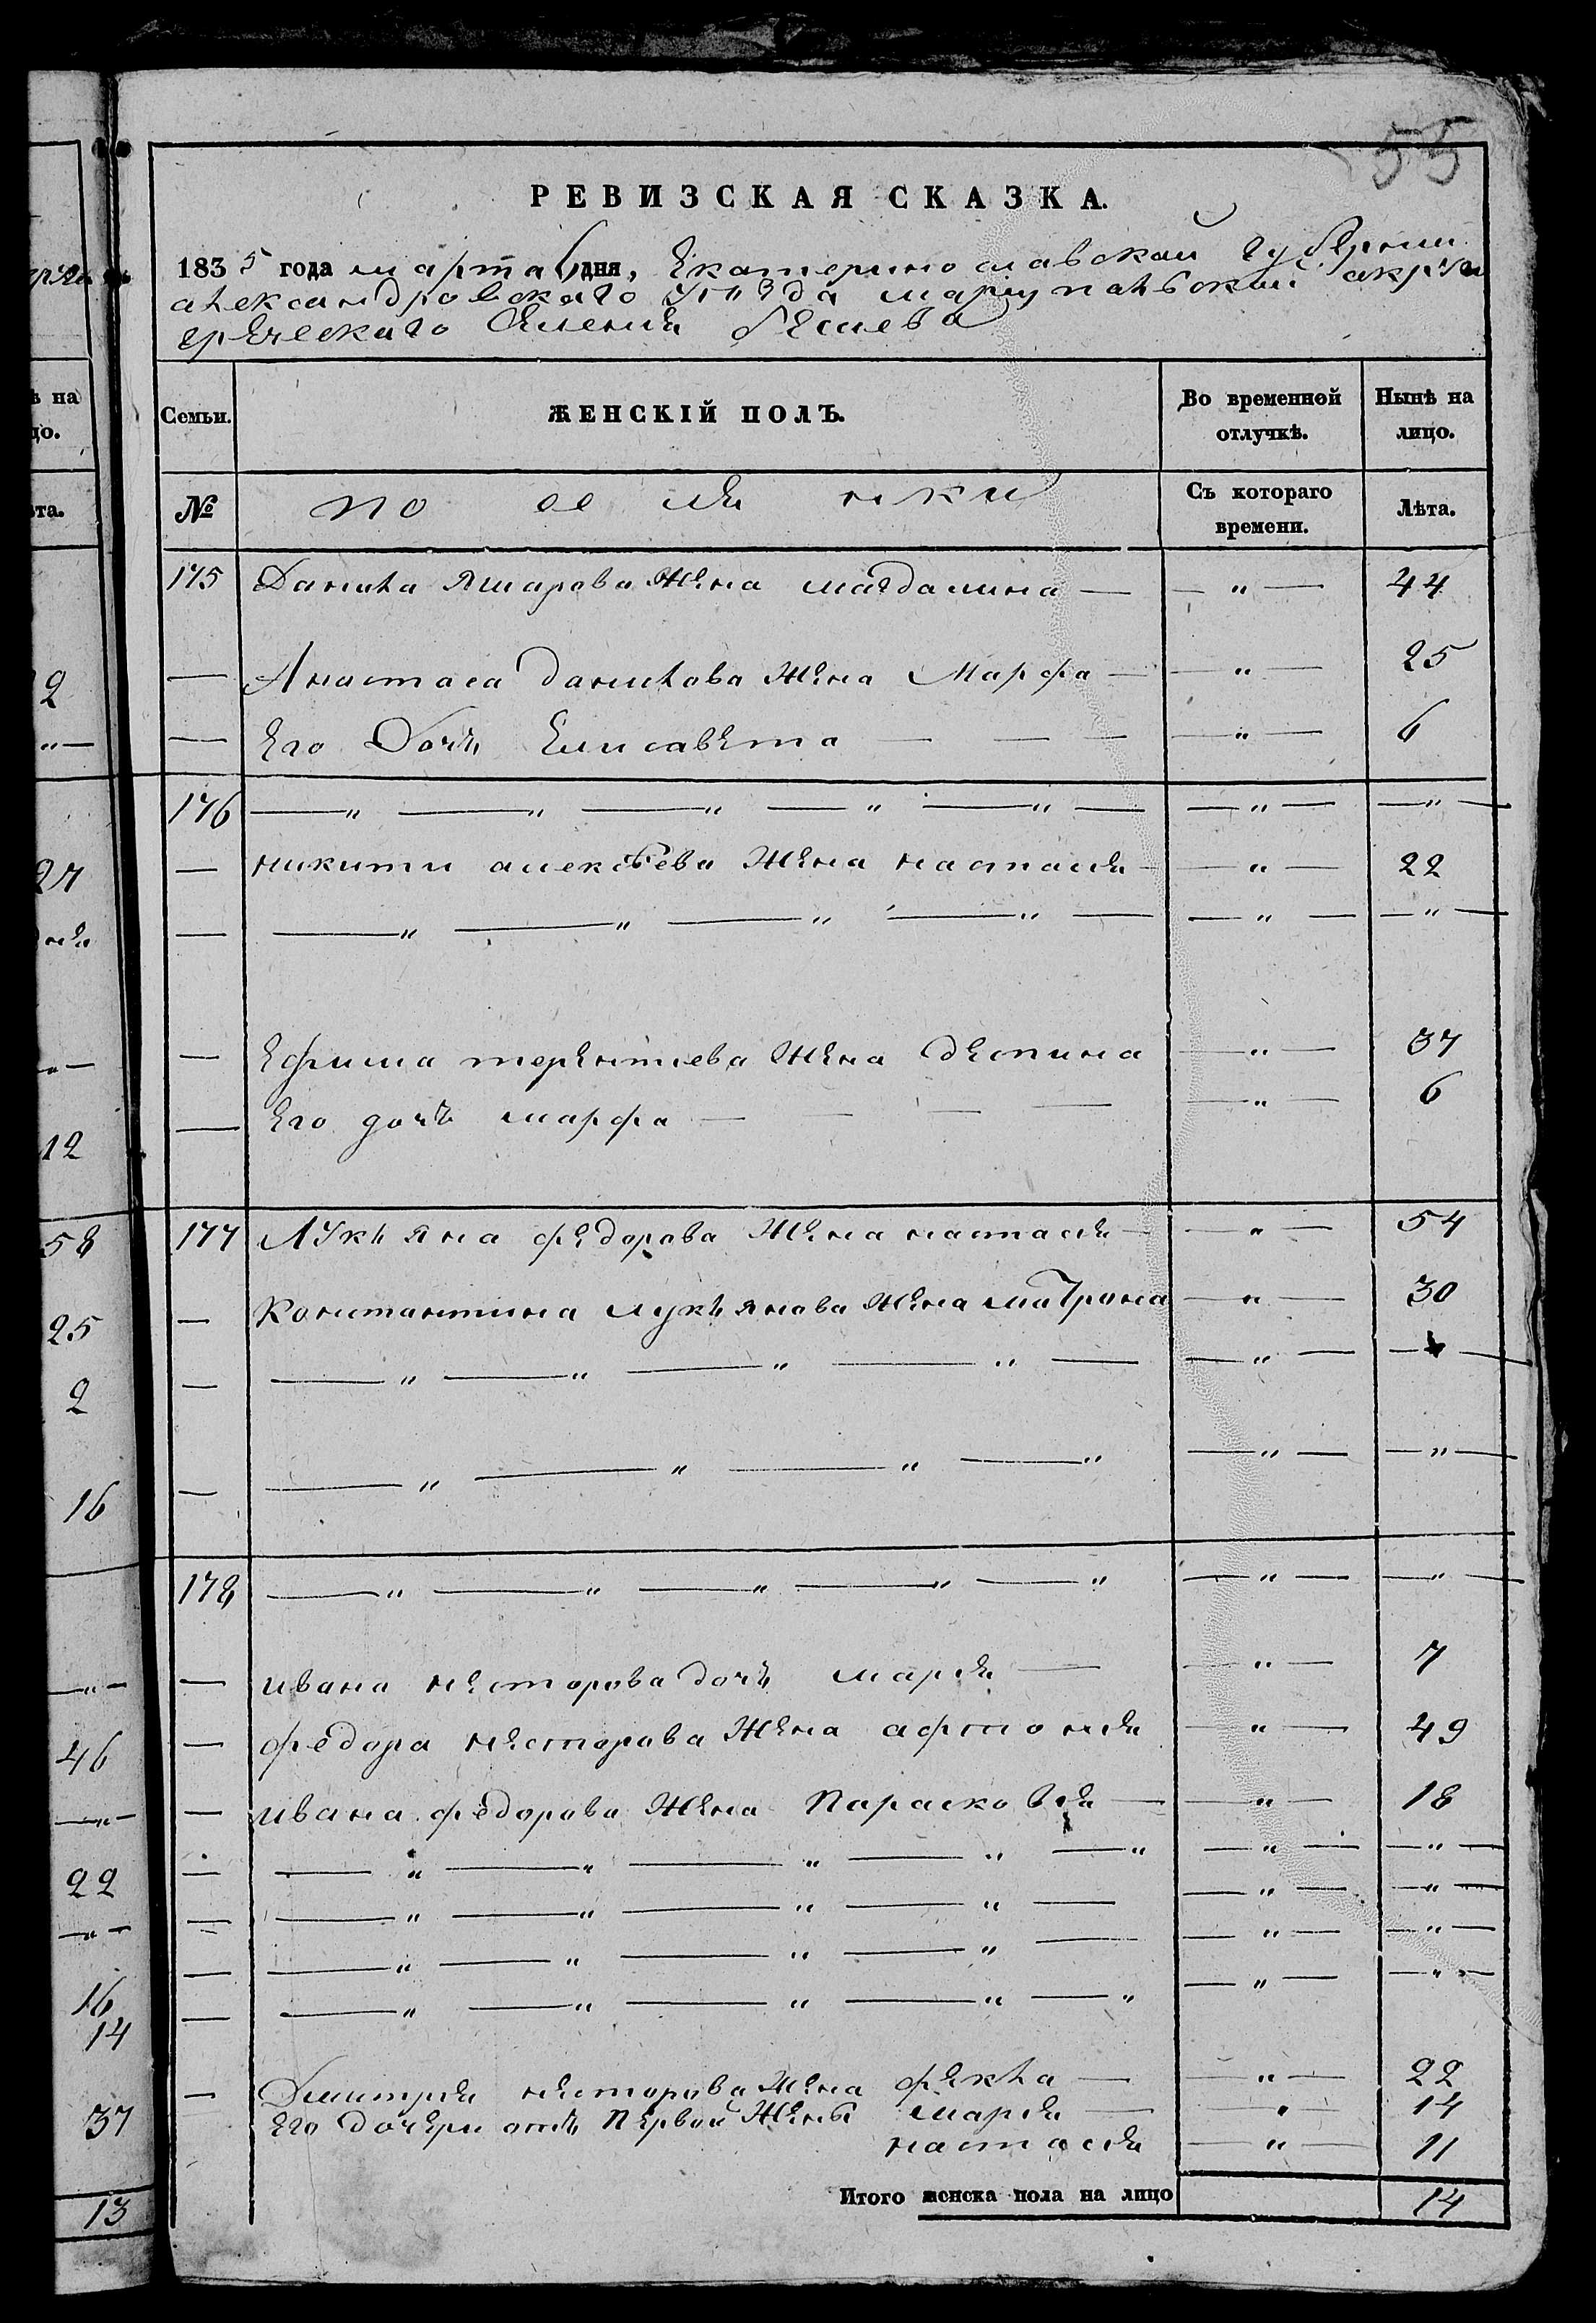 55
РЕВИЗСКАЯ СКАЗКА.
1835 года марта 6 дня, Екатеринославской губернии
александровскаго уезда мариупальской акруги
греческаго селения бешева
Семьи. ЖЕНСКІЙ ПОЛЪ. Во временной отлучкѣ. Нынѣ на лицо.
№ поселянки Съ котораго времени. Лѣта.
175 Данила Яшарова Жена магдалина — — „ — 44
— Анастаса данилова Жена Марфа — — „ — 25
— Его Дочь Елисавета — — — — „ — 6
176 — „ — „ — „ — „ — „ — — „ — — „ —
— никити алексеева Жена настасия — — „ — 22
— — „ — „ — „ — „ — — „ — — „ —
— Ефима терентиева Жена деспина — „ — 37
— Его дочь марфа — — — — — „ — 6
177 Лукьяна федорова Жена настасия — — „ — 54
— Константина лукьянова Жена матрона — „ — 30
— — „ — „ — „ — „ — — „ — — „ —
— — „ — „ — „ — „ — „ — — „ —
178 — „ — „ — „ — „ — „ — „ — — „ —
— ивана несторова дочь мария — — „ — 7
— федора несторова Жена афтония — „ — 49
— ивана федорова Жена Парасковия — — „ — 18
— — „ — „ — „ — „ — „ — „ — — „ —
— — „ — „ — „ — „ — — „ — — „ —
— — „ — „ — „ — „ — — „ — — „ —
— — „ — „ — „ — „ — „ — „ — — „ —
— Дмитрия несторова Жена фекла — — „ — 22
Его дочери отъ Первой Жены мария — — „ — 14
настасия — „ — 11
Итого женска пола на лицо 14